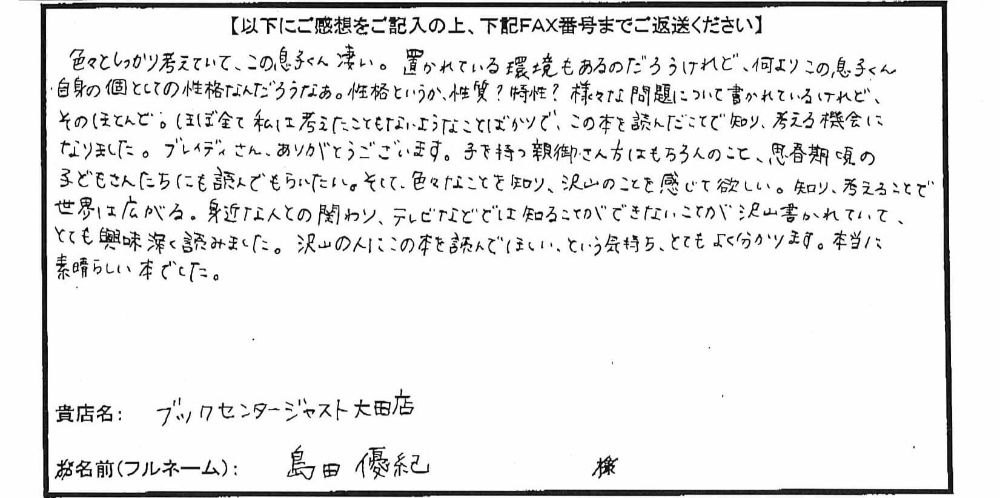 【以下にご感想をご記入の上、下記FAX番号までご返送ください】
色々としっかり考えていて、この息子くん凄い。置かれている環境もあるのだろうけれど、何よりこの息子くん
自身の個としての性格なんだろうなあ。性格というか、性質?特性?様々な問題について書かれているけれど、
そのほとんど。ほぼ全て私は考えたこともないようなことばかりで、この本を読んだことで知り、考える機会に
なりました。ブレイディさん、ありがとうございます。子を持つ親御さん方はもちろんのこと、思春期頃の
子どもさんたちにも読んでもらいたい。そして、色々なことを知り、沢山のことを感じて欲しい。知り、考えることで
世界は広がる。身近な人との関わり、テレビなどでは知ることができないことが沢山書かれていて、
とても興味深く読みました。沢山の人にこの本を読んでほしい、という気持ち、とてもよく分かります。本当に
素晴らしい本でした。
貴店名: ブックセンタージャスト大田店
お名前(フルネーム): 島田優紀 様